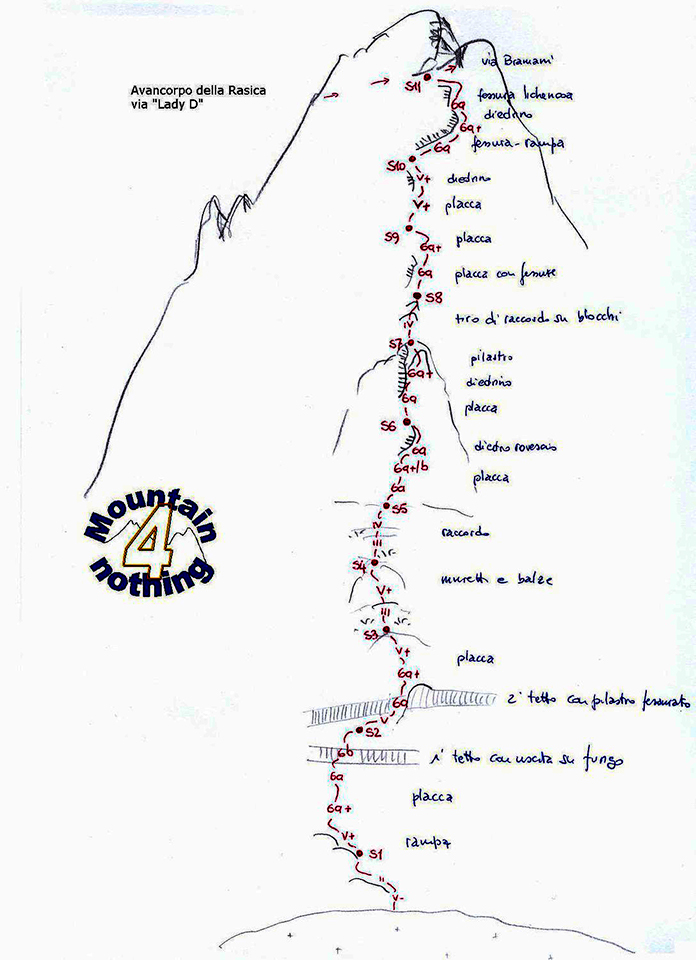 via Bramani
Avancorpo della Rasica
via "Lady D"
S11
fessura lichenosa
6a
diedrino
6a+
6a
fessura-rampa
S10
V+
diedrino
V+
placca
S9
6a+
placca
6a
placca con fessure
S8
IV
tiro di raccordo su blocchi
S7
pilastro
6a+
diedrino
6a
placca
S6
6a
diedro rovescio
6a+/b
placca
6a
S5
IV
raccordo
III
S4
V+
muretti e balze
III
S3
V+
placca
6a+
6a
2° tetto con pilastro fessurato
V
S2
6b
1° tetto con uscita su fungo
6a
placca
6a+
V+
rampa
S1
II
V-
Mountain
4
nothing